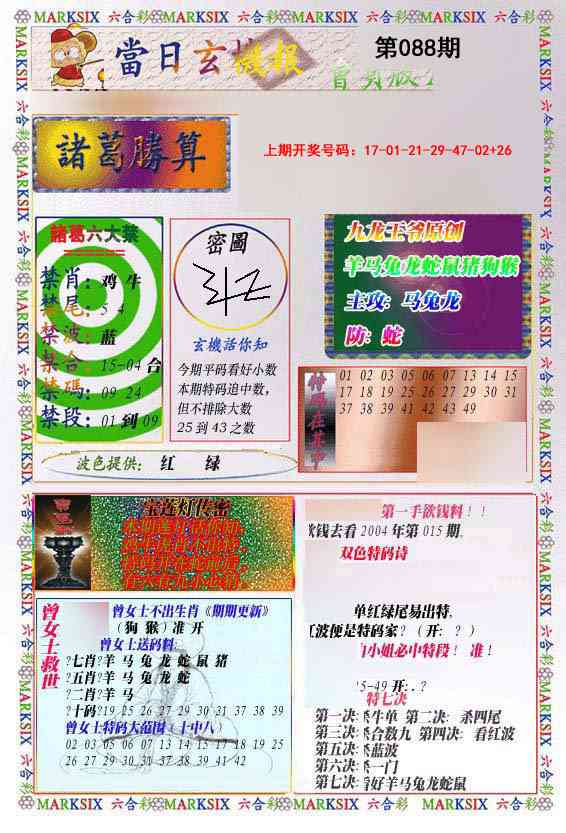 MARKSIX 六合彩 MARKSIX 六合彩 MARKSIX 六合彩 MARKSIX
當日玄機报
第088期
諸葛勝算
上期开奖号码：17-01-21-29-47-02+26
諸葛六大禁
禁肖：鸡 牛
禁尾：5 4
禁波：蓝
禁合：15-04 合
禁碼：09 24
禁段：01 到 09
密圖
玄機活你知
今期平码看好小数
本期特码追中数，
但不排除大数
25 到 43 之数
九龙王爷原创
羊马兔龙蛇鼠猪狗猴
主攻：马兔龙
防：蛇
波色提供：红 绿
特码在其中
01 02 03 05 06 07 13 14 15
17 18 19 25 26 27 29 30 31
37 38 39 41 42 43 49
宝莲灯传密
曾女士救世
曾女士不出生肖《期期更新》
（狗 猴）准 开
曾女士送码料：
?七肖?羊 马 兔 龙 蛇 鼠 猪
?五肖?羊 马 兔 龙 蛇
?二肖?羊 马
?十码?19 25 26 27 29 30 31 37 38 39
曾女士特码大范围（十中八）
02 03 05 06 07 13 14 15 17 18 19 25
26 27 29 30 31 37 38 39 41 42
第一手欲钱料！！
欲钱去看 2004 年第 015 期。
双色特码诗
单红绿尾易出特，
红波便是特码家？（开：？）
小姐必中特段！ 准！
5-49 开：.？
特七决
第一决:杀牛单 第二决：杀四尾
第三决:杀合数九 第四决：看红波
第五决:杀蓝波
第六决:杀一门
第七决:看好羊马兔龙蛇鼠
MARKSIX 六合彩 MARKSIX 六合彩 MARKSIX 六合彩 MARKSIX